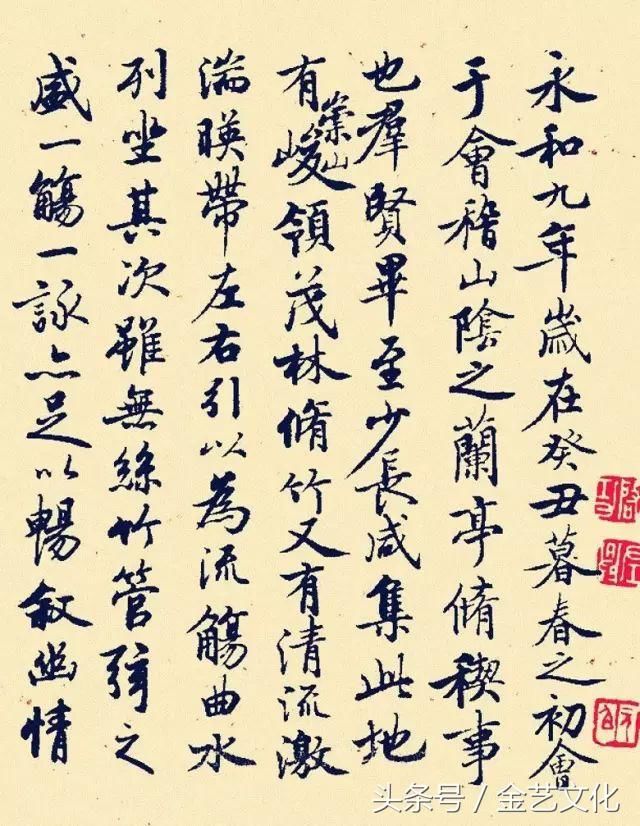 永和九年歲在癸丑暮春之初會
于會稽山陰之蘭亭脩稧事
也羣賢畢至少長咸集此地
有崇山峻領茂林脩竹又有清流激
湍暎帶左右引以為流觴曲水
列坐其次雖無絲竹管弦之
盛一觴一詠亦足以暢敘幽情
头条号 / 金艺文化